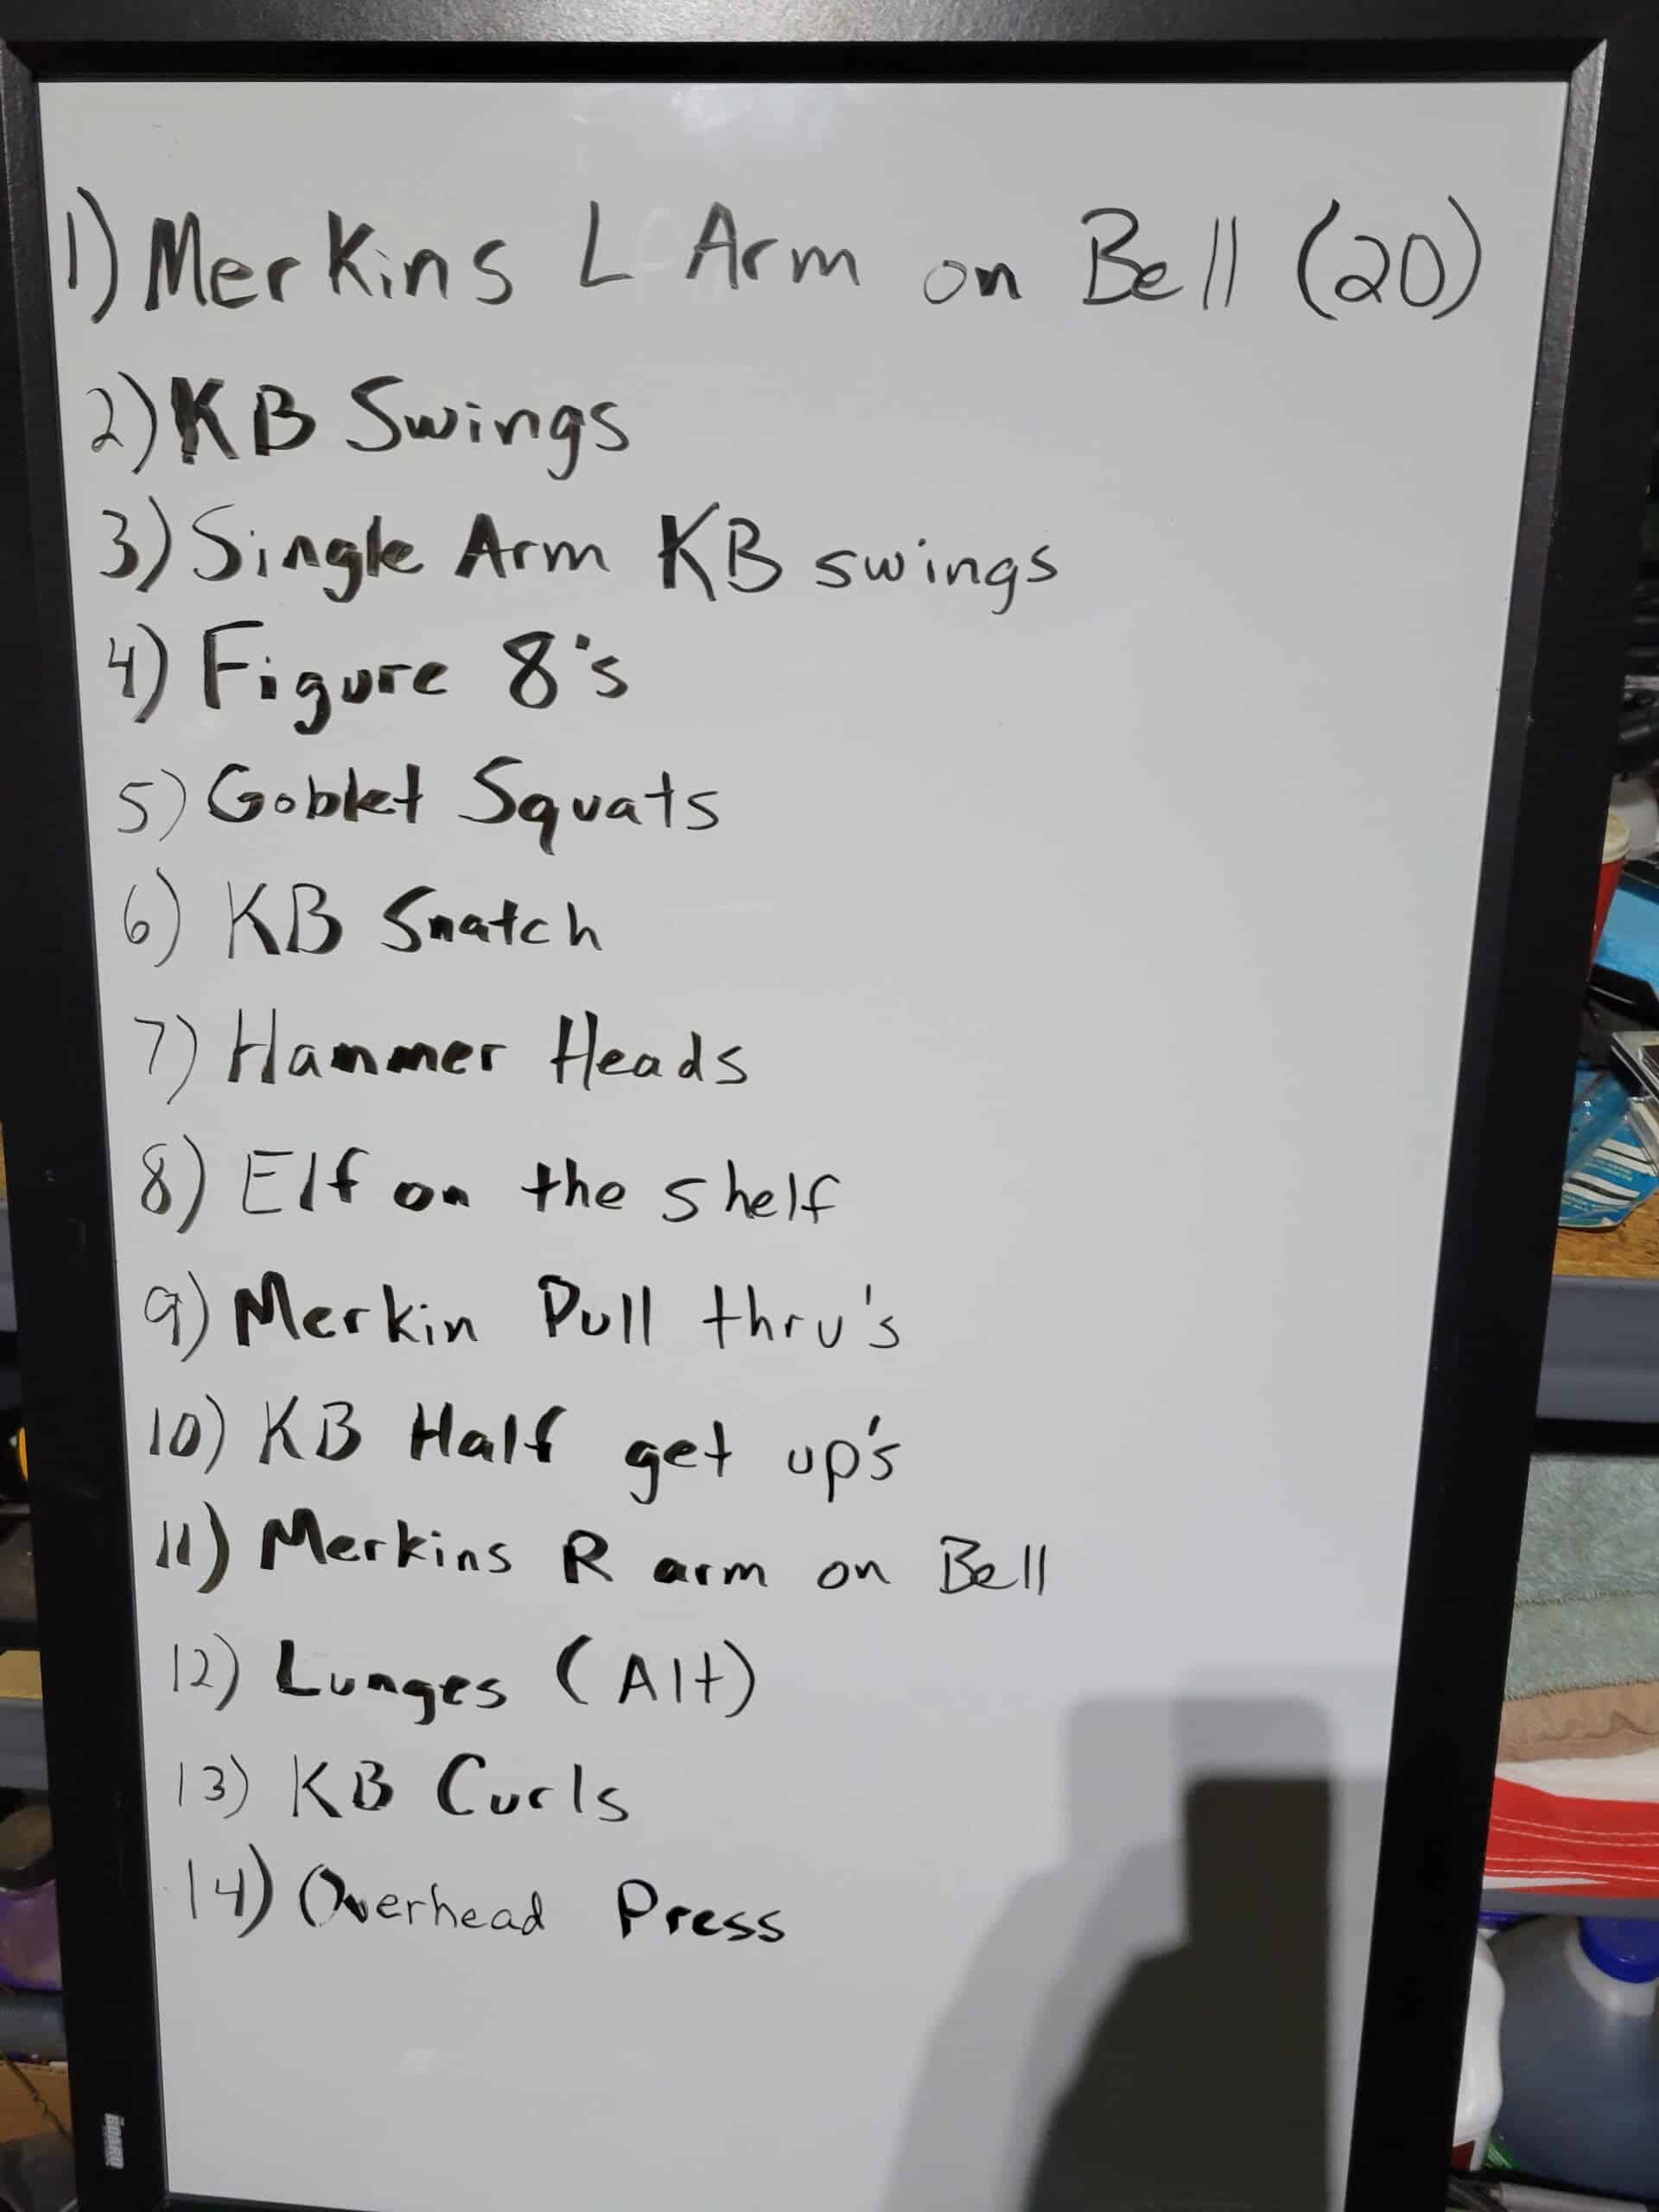 1) Merkins L Arm on Bell (20)
2) KB Swings
3) Single Arm KB swings
4) Figure 8's
5) Goblet Squats
6) KB Snatch
7) Hammer Heads
8) Elf on the shelf
9) Merkin Pull thru's
10) KB Half get up's
11) Merkins R arm on Bell
12) Lunges (Alt)
13) KB Curls
14) Overhead Press